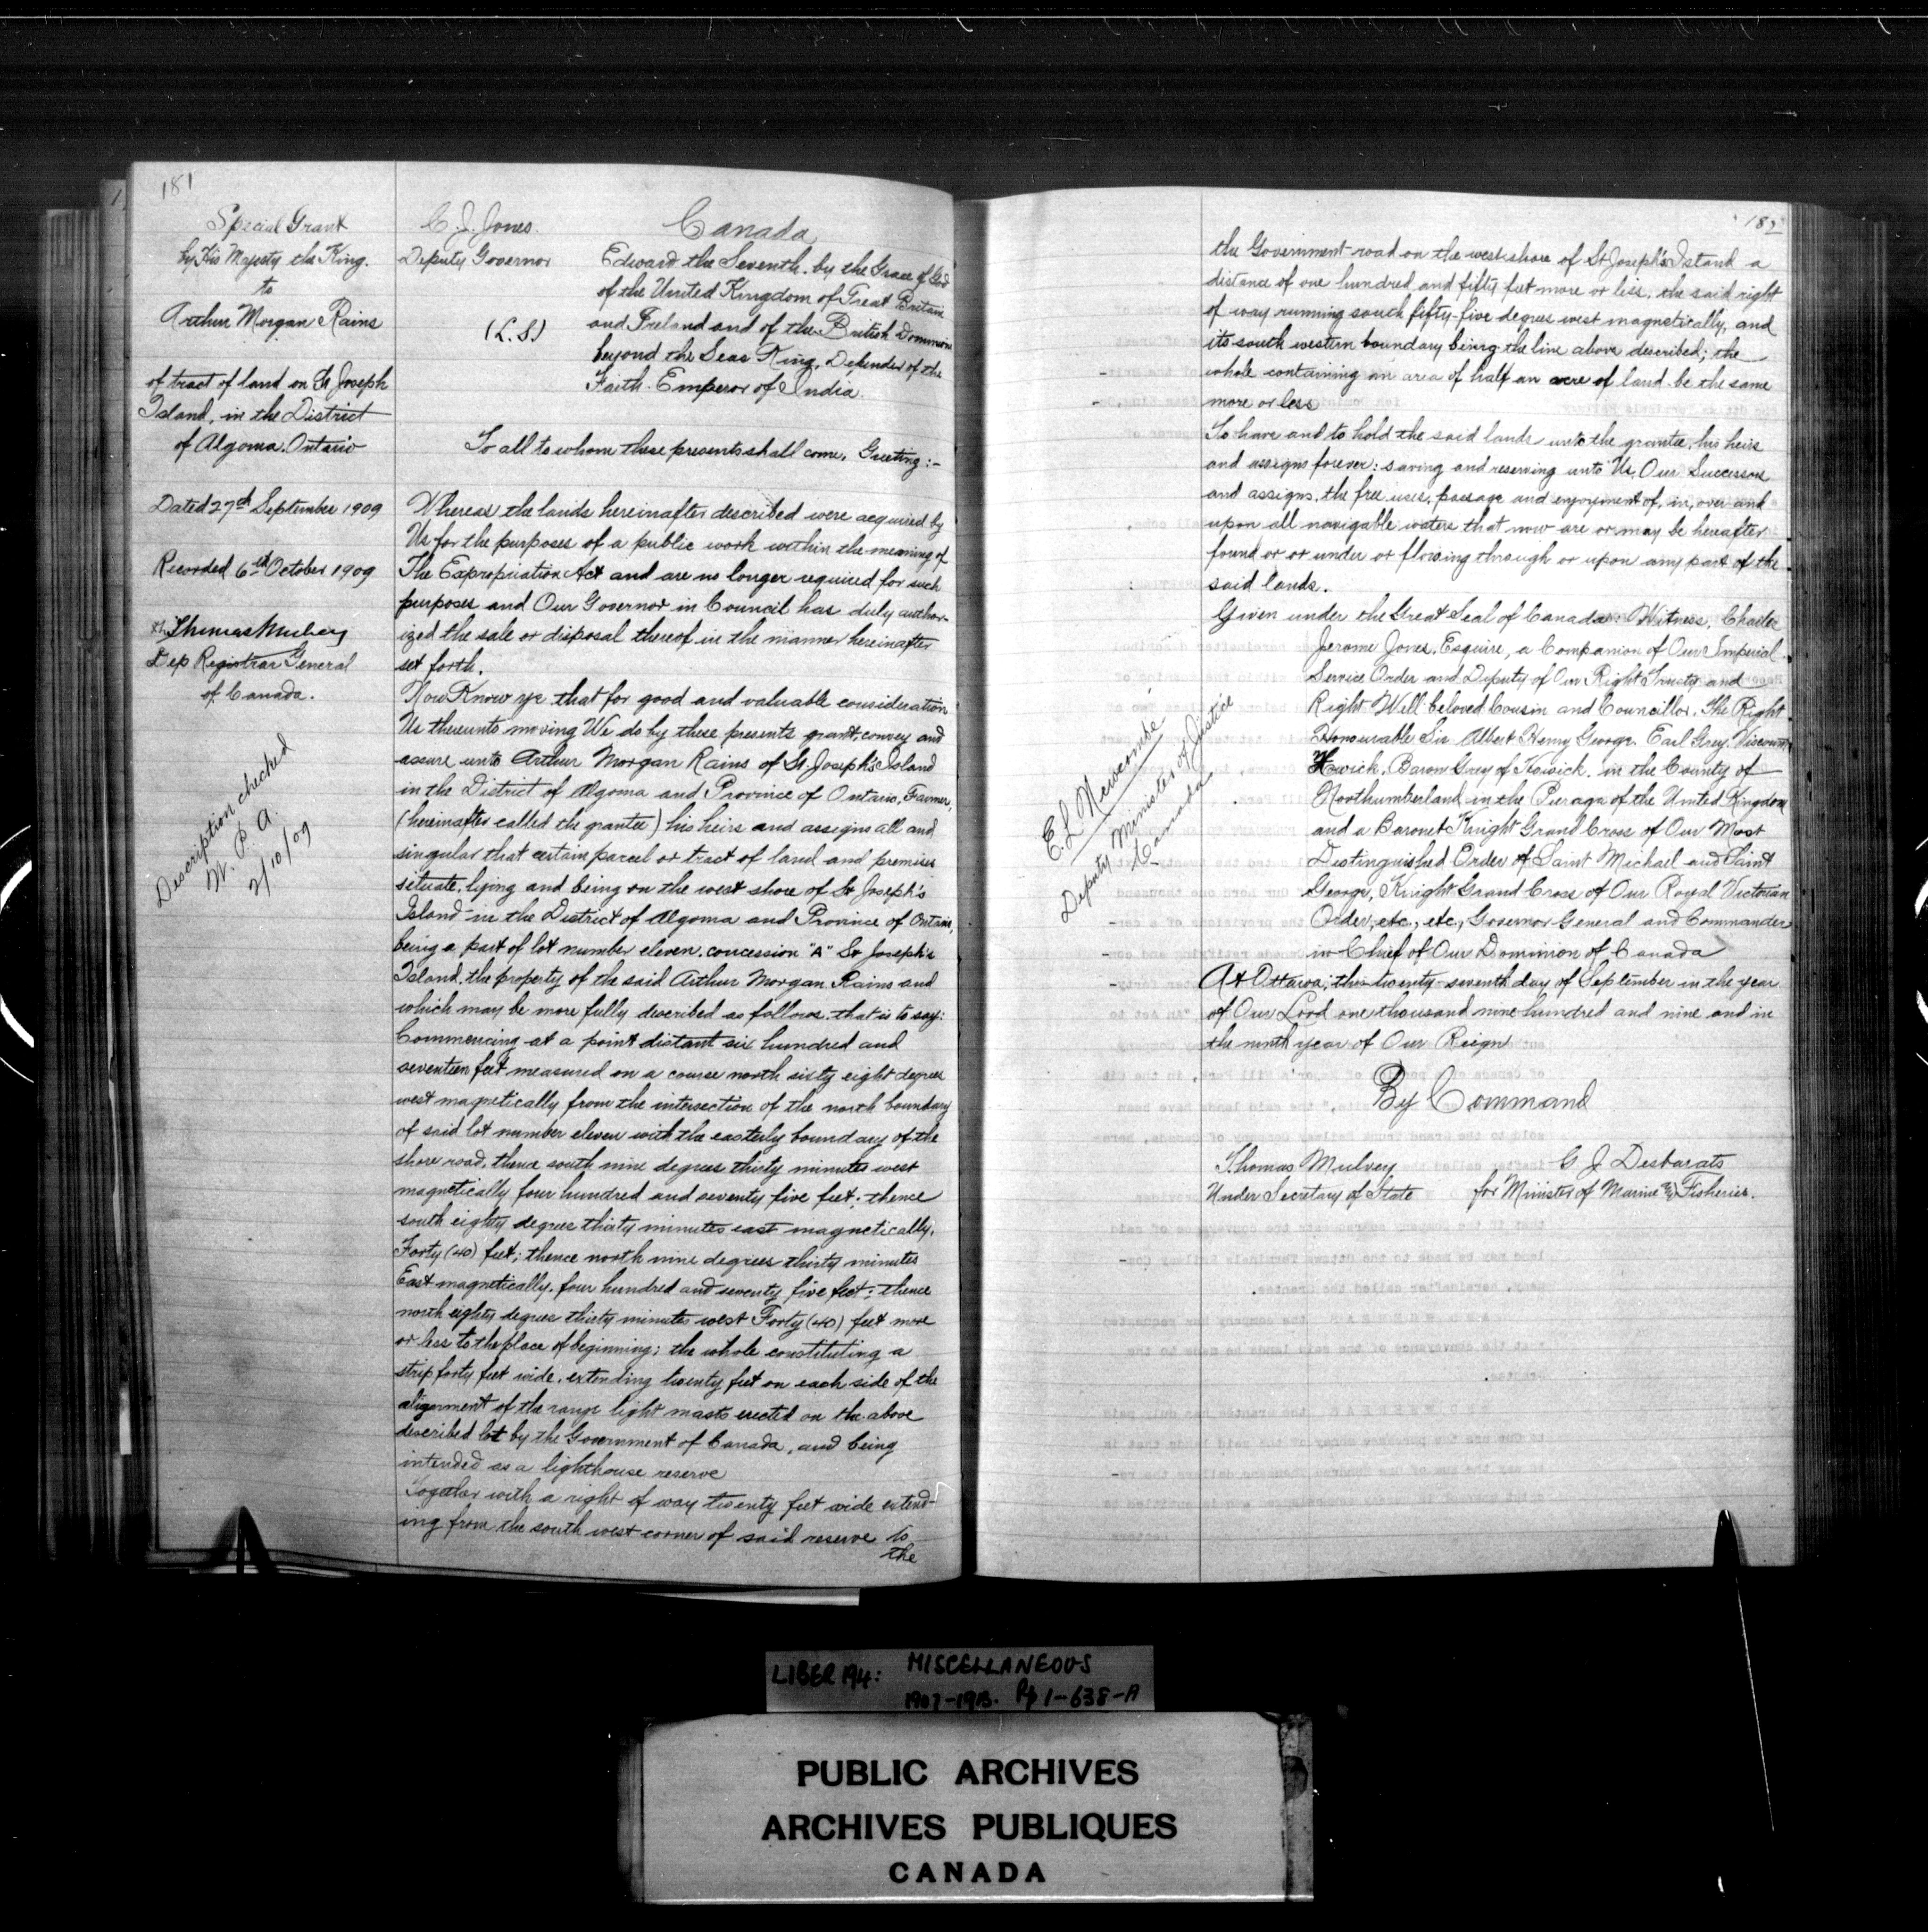 181
Special Grant
by His Majesty the King.
to
Arthur Morgan Rains
of tract of land on St Joseph
Island, in the District
of Algoma, Ontario
Dated 27th September 1909
Recorded 6th October 1909
Thomas Mulvey
Dep Registrar General
of Canada.
Description checked
W. P. A.
2/10/09
C. J. Jones.
Deputy Governor
(L.S)
Canada
Edward the Seventh, by the Grace of God
of the United Kingdom of Great Britain
and Ireland and of the British Dominions
beyond the Seas King, Defender of the
Faith. Emperor of India.
To all to whom these presents shall come, Greeting:-
Whereas the lands hereinafter described were acquired by
Us for the purposes of a public work within the meaning of
The Expropriation Act and are no longer required for such
purposes and Our Governor in Council has duly author-
ized the sale or disposal thereof in the manner hereinafter
set forth.
Now Know ye that for good and valuable consideration
Us thereunto moving We do by these presents grant, convey and
assure unto Arthur Morgan Rains of St. Joseph's Island
in the District of Algoma and Province of Ontario, Farmer,
(hereinafter called the grantee) his heirs and assigns all and
singular that certain parcel or tract of land and premises
situate, lying and being on the west shore of St Joseph's
Island in the District of Algoma and Province of Ontario,
being a part of lot number eleven, concession "A" St Joseph's
Island, the property of the said Arthur Morgan Rains and
which may be more fully described as follows, that is to say:
Commencing at a point distant six hundred and
seventeen feet measured on a course north sixty eight degrees
west magnetically from the intersection of the north boundary
of said lot number eleven with the easterly boundary of the
shore road, thence south nine degrees thirty minutes west
magnetically four hundred and seventy five feet; thence
south eighty degrees thirty minutes east magnetically,
Forty (40) feet; thence north nine degrees thirty minutes
East magnetically, four hundred and seventy five feet; thence
north eighty degrees thirty minutes west Forty (40) feet more
or less to the place of beginning; the whole constituting a
strip forty feet wide, extending twenty feet on each side of the
alignment of the range light masts erected on the above
described lot by the Government of Canada, and being
intended as a lighthouse reserve
Together with a right of way twenty feet wide extend-
ing from the south west corner of said reserve to
the
182
the Government road on the west shore of St Joseph's Island a
distance of one hundred and fifty feet more or less, the said right
of way running south fifty-five degrees west magnetically, and
its south western boundary being the line above described; the
whole containing an area of half an acre of land be the same
more or less
To have and to hold the said lands unto the grantee, his heirs
and assigns forever: saving and reserving unto Us, Our Successors
and assigns, the free uses, passage and enjoyment of, in, over and
upon all navigable waters that now are or may be hereafter
found or or under or flowing through or upon any part of the
said lands.
Given under the Great Seal of Canada: Witness, Charles
Jerome Jones, Esquire, a Companion of Our Imperial
Service Order and Deputy of Our Right Trusty and
Right Well-beloved Cousin and Councillor, The Right
Honourable Sir Albert Henry George, Earl Grey, Viscount
Howick, Baron Grey of Howick, in the County of
Northumberland in the Peerage of the United Kingdom
and a Baronet Knight Grand Cross of Our Most
Distinguished Order of Saint Michael and Saint
George, Knight Grand Cross of Our Royal Victorian
Order, etc., etc., Governor General and Commander
in Chief of Our Dominion of Canada
At Ottawa, this twenty-seventh day of September in the year
of Our Lord one thousand nine hundred and nine and in
the ninth year of Our Reign
By Command
Thomas Mulvey
Under Secretary of State
G J Desbarats
for Minister of Marine & Fisheries.
E. L Newcombe
Deputy Minister of Justice
Canada
LIBER 194: MISCELLANEOUS
1907-1913. Pp 1-638-A
PUBLIC ARCHIVES
ARCHIVES PUBLIQUES
CANADA